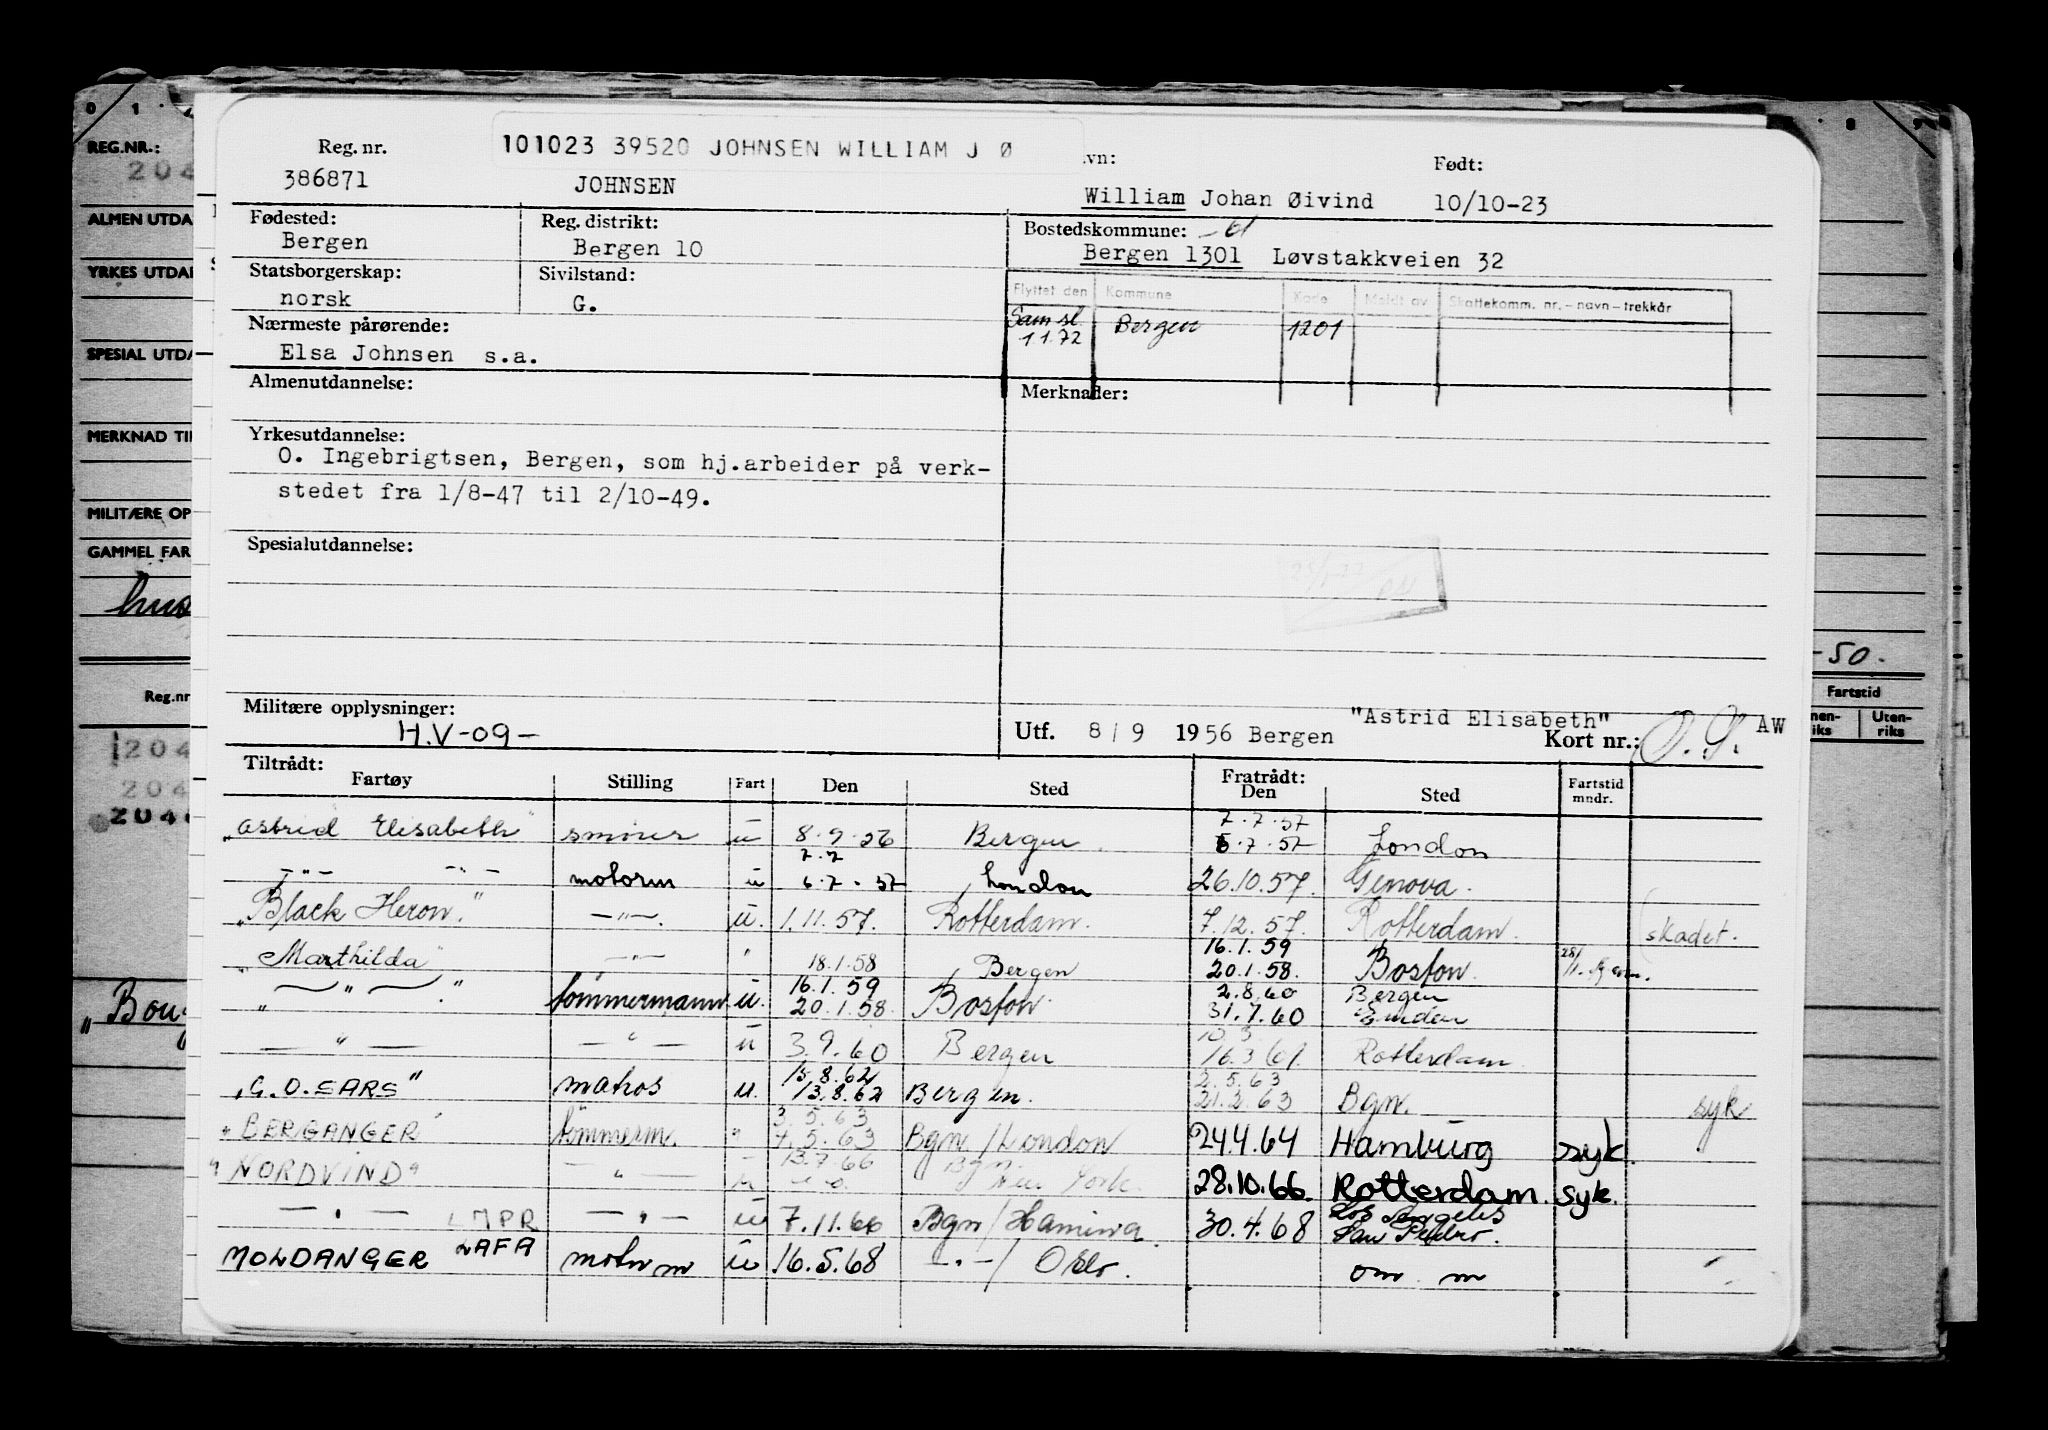 101023 39520 JOHNSEN WILLIAM J Ø
Reg. nr.
386871
JOHNSEN
vn:
William Johan Øivind
Født:
10/10-23
Fødested:
Bergen
Reg. distrikt:
Bergen 10
Bostedskommune:
Bergen 1301 Løvstakkveien 32
Statsborgerskap:
norsk
Sivilstand:
G.
Flyttet den Kommune Kode Meldt av Skattekomm. nr. – navn – trekkår
Sam sl. 1 1.72 Bergen 1201
Nærmeste pårørende:
Elsa Johnsen s.a.
Almenutdannelse:
Merknader:
Yrkesutdannelse:
O. Ingebrigtsen, Bergen, som hj.arbeider på verk-
stedet fra 1/8-47 til 2/10-49.
Spesialutdannelse:
Militære opplysninger:
H.V-09-
Utf. 8/9 1956 Bergen "Astrid Elisabeth"
Kort nr.: AW
Tiltrådt: Fratrådt:
Fartøy Stilling Fart Den Sted Den Sted Fartstid mndr.
7.7.57
"Astrid Elisabeth" smører u 8.9.56 Bergen 6.7.57 London
7.7
-"- -"- motorm u 6.7.57 London 26.10.57. Genova.
"Black Heron." -"-. u. 1.11.57. Rotterdam. 7.12.57. Rotterdam. skadet.
16.1.59
"Marthilda" -"- " 18.1.58 Bergen 20.1.58. Boston.
16.1.59 2.8.60 Bergen
" -"- " tømmermann u. 20.1.58. Boston. 31.7.60 Emden
10.3.
-"- -"- u 3.9.60 Bergen 16.3.61. Rotterdam.
15.8.62 2.5.63
"G.O.SARS" matros u. 13.8.62 Bergen. 21.2.63 Bgn. syk
3.5.63
"BERGANGER" tømmerm. " 4.5.63 Bgn/London 24.4.64 Hamburg syk.
13.7.66
"NORDVIND" -"- u Bg New York. 28.10.66. Rotterdam. syk.
-"- LMPR -"- u 7.11.66 Bgn/Hamina. 30.4.68 Los Angeles San Pedro.
MOLDANGER LAFA motorm u 16.5.68 -"-/ Oslo. om. m
REG.NR.:
204
ALMEN UTDA
YRKES UTDA
SPESIAL UTDA
MERKNAD TI
MILITÆRE OP
GAMMEL FAR
hus
Reg.nr
204
204
204
"Boug
-50.
Fartstid
nen-
riks
Uten-
riks